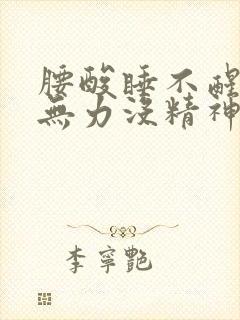 腰酸睡不醒
無力沒精神
李寧艷